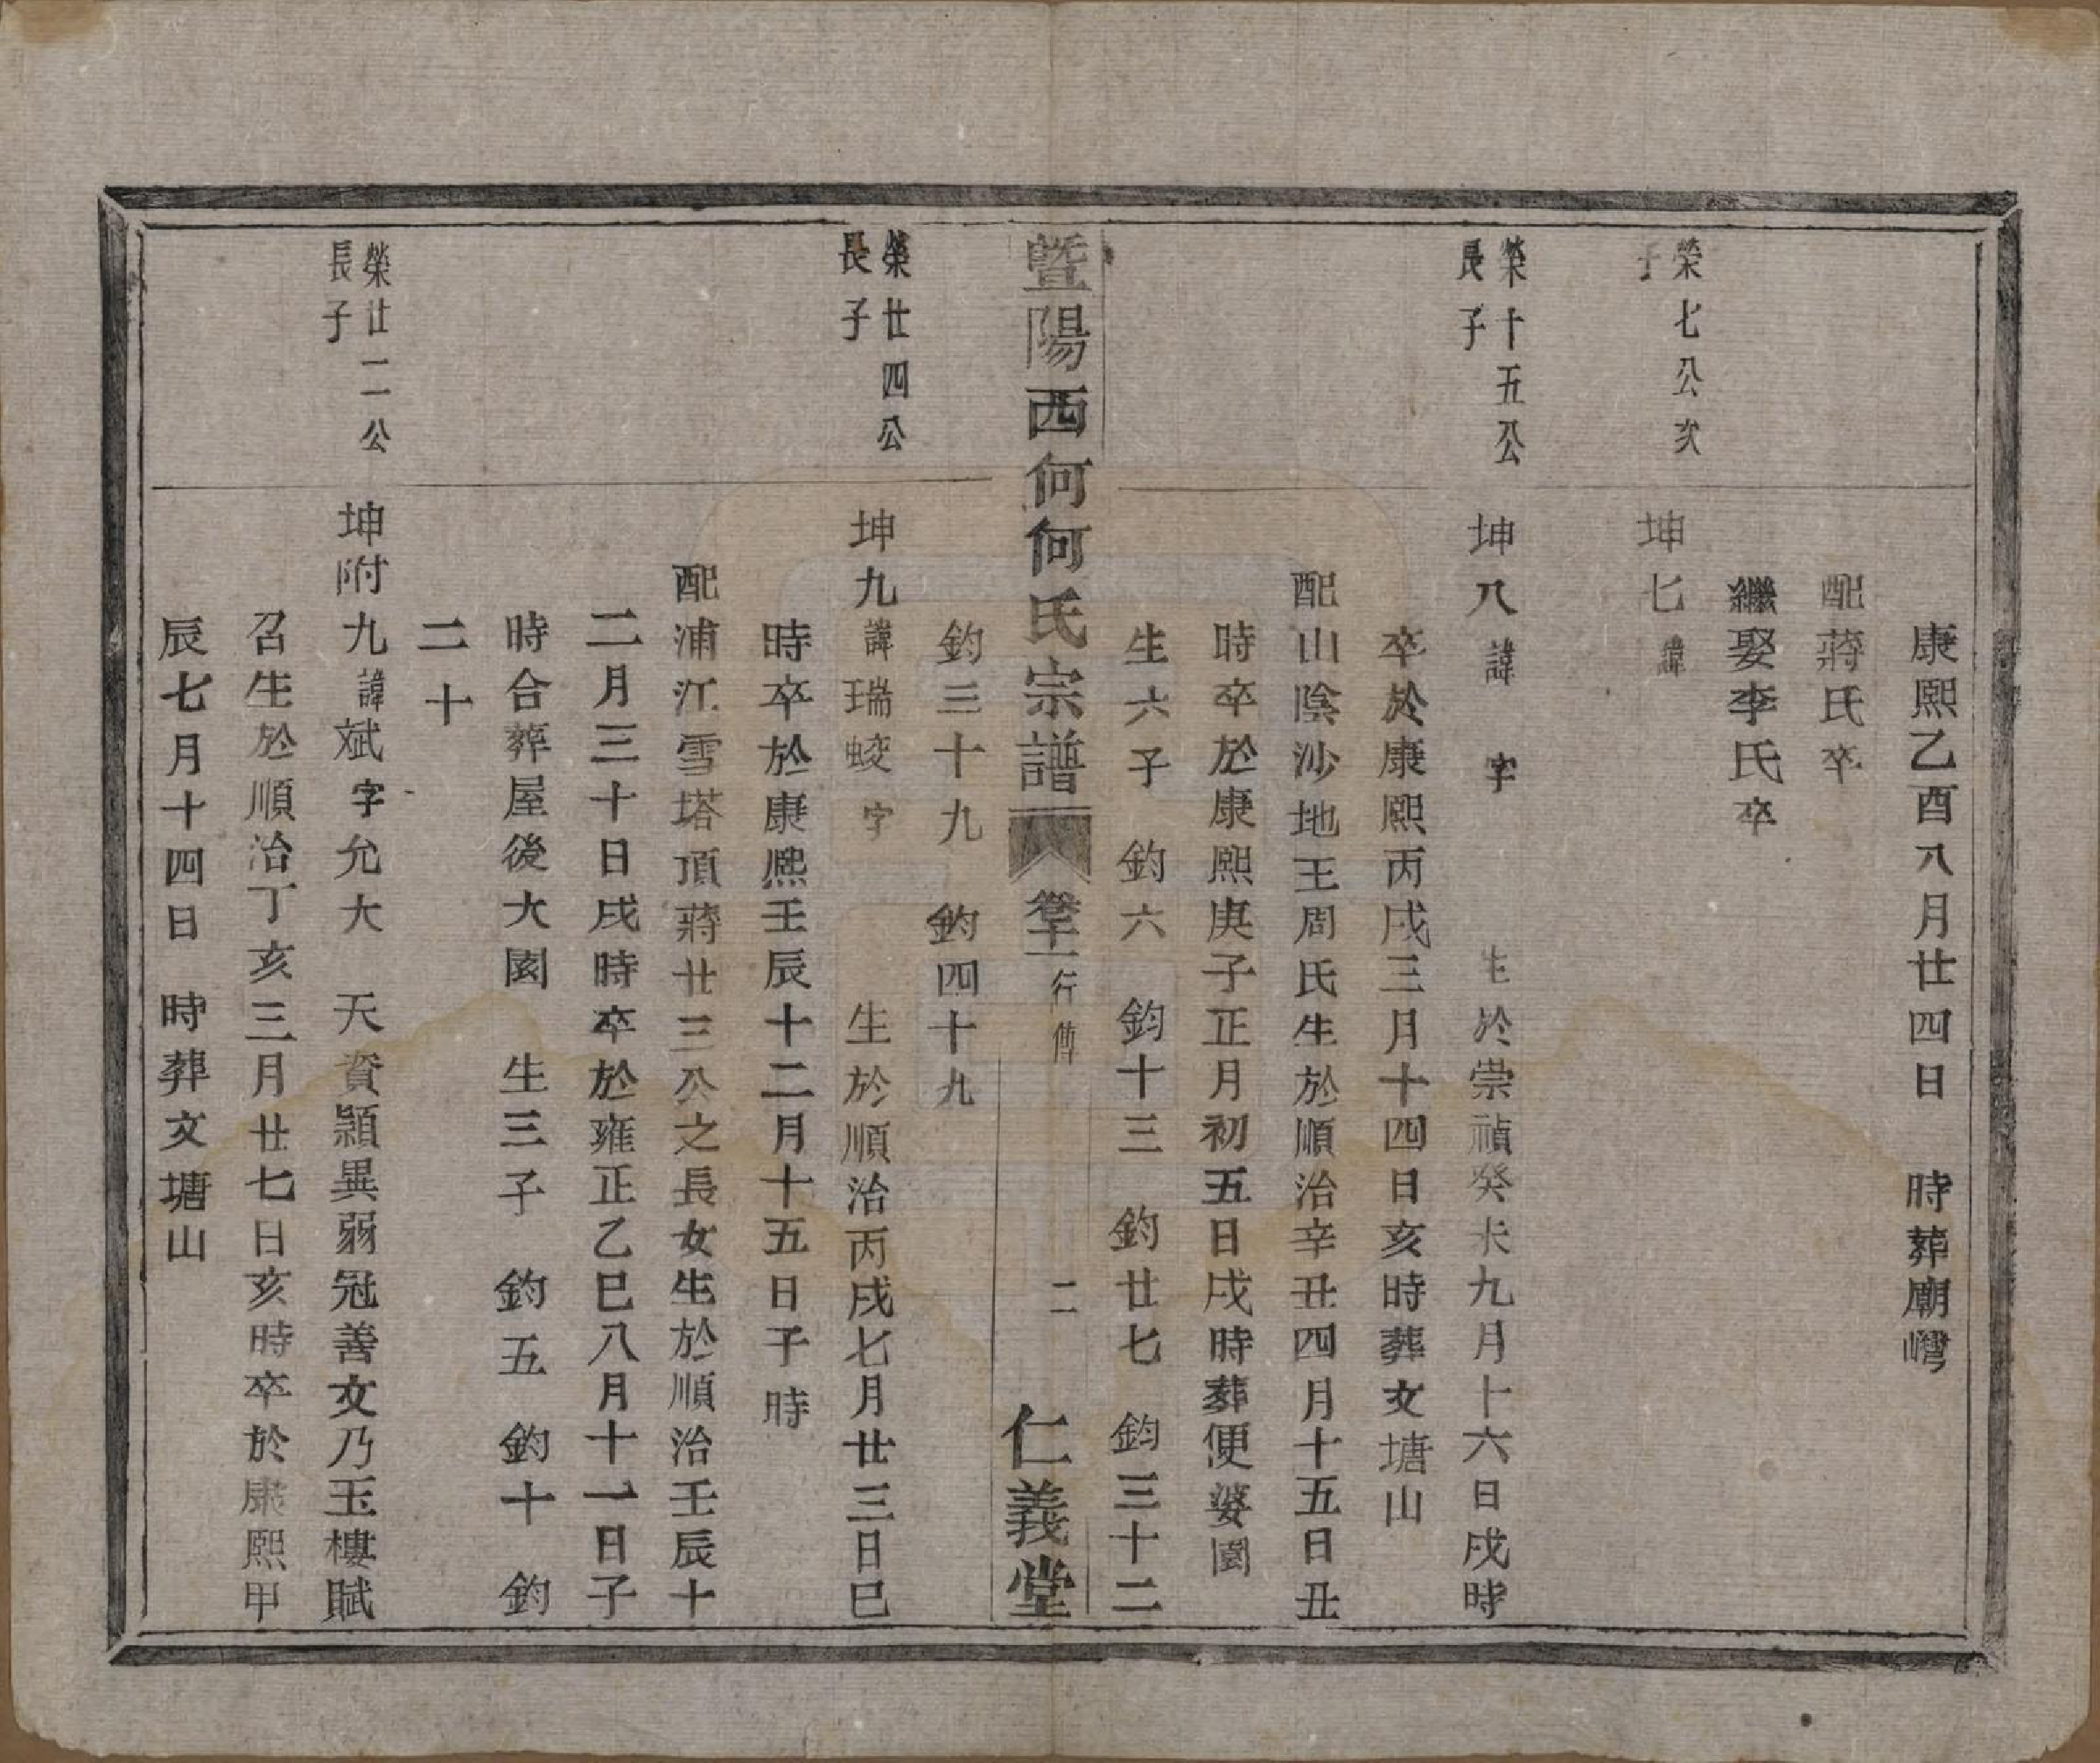 康熙乙酉八月廿四日　時葬廟嶴
配蔣氏卒
繼娶李氏卒
榮七公次
子
坤七諱
榮十五公
長子
坤八諱　字　生於崇禎癸未九月十六日戌時
卒於康熙丙戌三月十四日亥時葬文塘山
配山陰沙地王周氏生於順治辛丑四月十五日丑
時卒於康熙庚子正月初五日戌時葬便婆園
生六子　鈞六　鈞十三　鈞廿七　鈞三十二
暨陽西何何氏宗譜　卷十一　行傳　二　仁義堂
鈞三十九　鈞四十九
榮廿四公
長子
坤九諱瑞蛟字　生於順治丙戌七月廿三日巳
時卒於康熙壬辰十二月十五日子時
配浦江雪塔頂蔣廿三公之長女生於順治壬辰十
二月三十日戌時卒於雍正乙巳八月十一日子
時合葬屋後大園　生三子　鈞五　鈞十　鈞
二十
榮廿二公
長子
坤附九諱斌字允大　天資穎異弱冠善文乃玉樓賦
召生於順治丁亥三月廿七日亥時卒於康熙甲
辰七月十四日　時葬文塘山